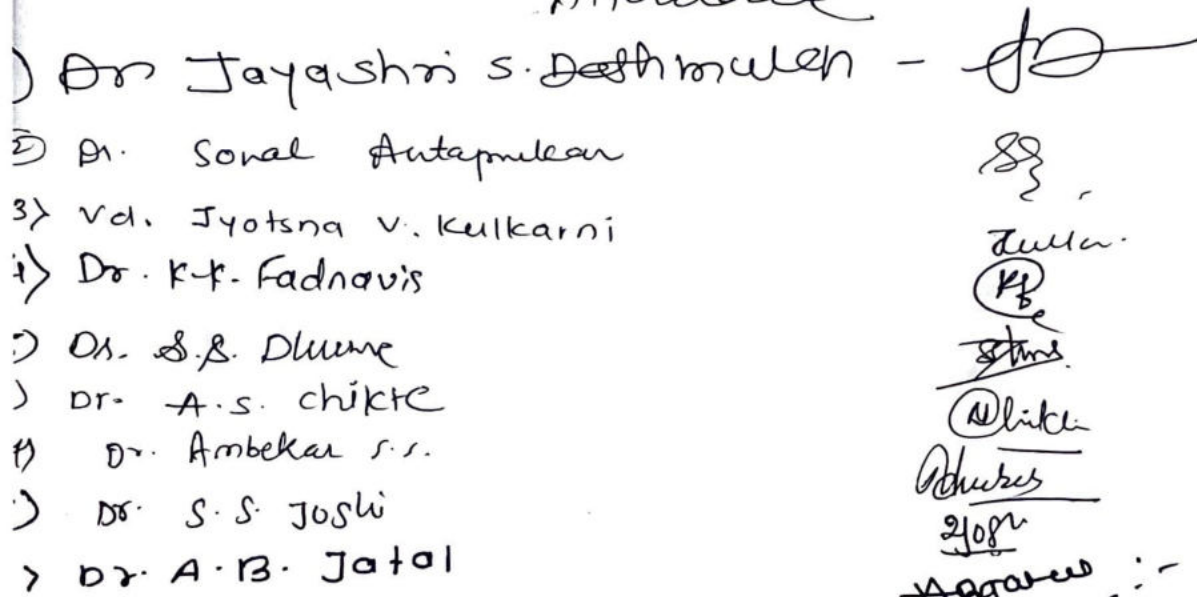 ) Dr Jayashri S. Deshmukh -
2) Dr. Sonal Antapurkar
3) Vd. Jyotsna V. Kulkarni
4) Dr. K.K. Fadnavis
) Dr. S.S. Dhume
) Dr. A.S. Chikte
) Dr. Ambekar S.S.
) Dr. S.S. Joshi
) Dr. A.B. Jatal